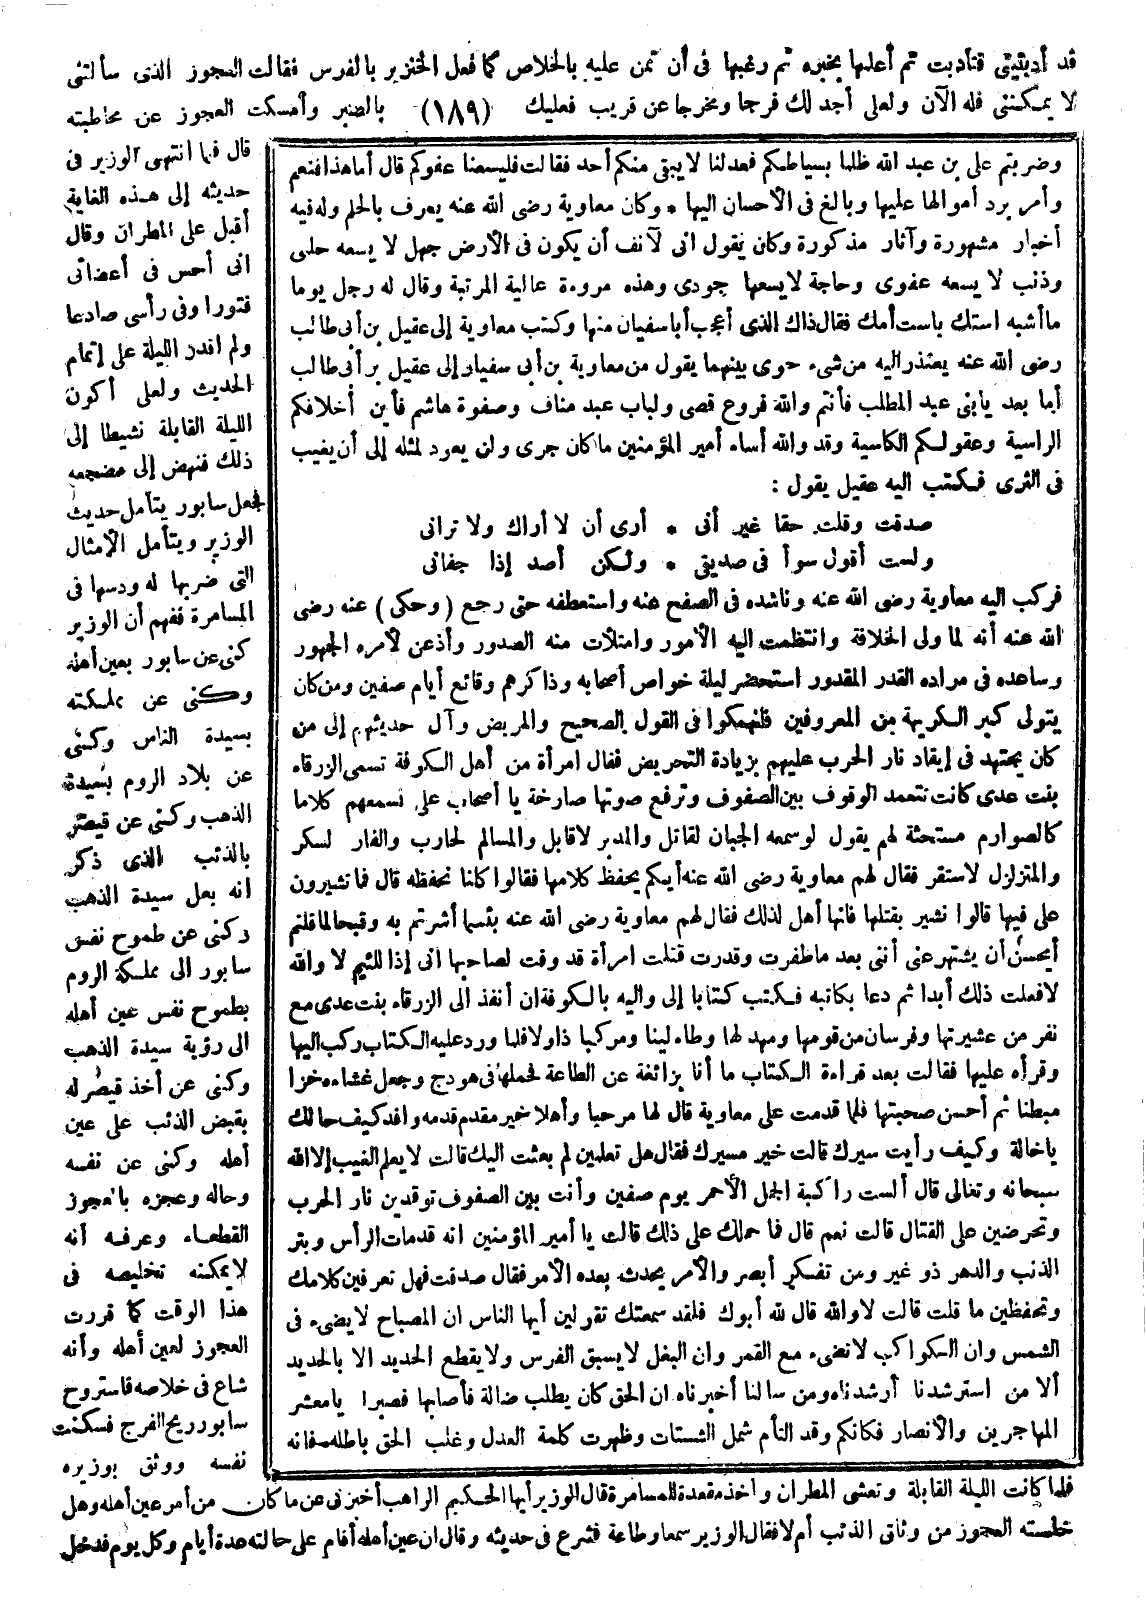 قد أدبتنى فتأدبت ثم أعلمها بخبره ثم رغبها فى أن تمن عليه بالخلاص كما فعل الخنزير بالفرس فقالت العجوز الذى سألتنى
لا يمكننى فعله الآن ولعلى أجد لك فرجا ومخرجا عن قريب فعليك (١٨٩) بالصبر وأمسكت العجوز عن مخاطبته
وضربتم على بن عبد الله ظلما بسياطكم فعدلنا لا يبقى منكم أحد فقالت فليسعنا عفوكم قال أما هذا فنعم
وأمر برد أموالها عليها وبالغ فى الأحسان اليها * وكان معاوية رضى الله عنه يعرف بالحلم وله فيه
أخبار مشهورة وآثار مذكورة وكان يقول انى لآنف أن يكون فى الأرض جهل لا يسعه حلمى
وذنب لا يسعه عفوى وحاجة لا يسعها جودى وهذه مروءة عالية المرتبة وقال له رجل يوما
ما أشبه استك باست أمك فقال ذاك الذى أعجب أبا سفيان منها وكتب معاوية إلى عقيل بن أبى طالب
رضى الله عنه يعتذر اليه من شىء جرى بينهما يقول من معاوية بن أبى سفيان إلى عقيل بن أبى طالب
أما بعد يابنى عبد المطلب فأنتم والله فروع قصى ولباب عبد مناف وصفوة هاشم فأين أخلافكم
الراسية وعقولكم الكاسية وقد والله أساء أمير المؤمنين ما كان جرى ولن يعود لمثله إلى أن يغيب
فى الثرى فكتب اليه عقيل يقول :
صدقت وقلت حقا غير أنى * أرى أن لا أراك ولا ترانى
ولست أقول سوأ فى صديقى * ولكن أصد إذا جفانى
فركب اليه معاوية رضى الله عنه وناشده فى الصفح عنه واستعطفه حتى رجع (وحكى) عنه رضى
الله عنه أنه لما ولى الخلافة وانتظمت اليه الأمور وامتلأت منه الصدور وأذعن لأمره الجمهور
وساعده فى مراده القدر المقدور استحضر ليلة خواص أصحابه وذاكرهم وقائع أيام صفين ومن كان
يتولى كبر الكريهة من المعروفين فانهمكوا فى القول الصحيح والمريض وآل حديثهم إلى من
كان يجتهد فى إيقاد نار الحرب عليهم بزيادة التحريض فقال امرأة من أهل الكوفة تسمى الزرقاء
بنت عدى كانت تتعمد الوقوف بين الصفوف وترفع صوتها صارخة يا أصحاب على تسمعهم كلاما
كالصوارم مستحثة لهم يقول لو سمعه الجبان لقاتل والمدبر لأقبل والمسالم لحارب والفار لسكر
والمتزلزل لاستقر فقال لهم معاوية رضى الله عنه أيكم يحفظ كلامها فقالوا كلنا نحفظه قال فما تشيرون
على فيها قالوا نشير بقتلها فانها أهل لذلك فقال لهم معاوية رضى الله عنه بئسما أشرتم به وقبحا لما قلتم
أيحسن أن يشتهر عنى أننى بعد ما ظفرت وقدرت قتلت امرأة قد وفت لصاحبها انى إذا للئيم لا والله
لا فعلت ذلك أبدا ثم دعا بكاتبه فكتب كتابا إلى واليه بالكوفة ان أنفذ الى الزرقاء بنت عدى مع
نفر من عشيرتها وفرسان من قومها ومهد لها وطاء لينا ومركبا ذلولا فلما ورد عليه الكتاب ركب اليها
وقرأه عليها فقالت بعد قراءة الكتاب ما أنا بزائغة عن الطاعة فحملها فى هودج وجعل غشاءه خزا
مبطنا ثم أحسن صحبتها فلما قدمت على معاوية قال لها مرحبا وأهلا خير مقدم قدمه وافد كيف حالك
ياخالة وكيف رأيت سيرك قالت خير مسيرك فقال هل تعلمين لم بعثت اليك قالت لا يعلم الغيب إلا الله
سبحانه وتعالى قال ألست راكبة الجمل الأحمر يوم صفين وأنت بين الصفوف توقدين نار الحرب
وتحرضين على القتال قالت نعم قال فما حملك على ذلك قالت يا أمير المؤمنين انه قد مات الرأس وبتر
الذنب والدهر ذو غير ومن تفكر أبصر والأمر يحدث بعده الأمر فقال صدقت فهل تعرفين كلامك
وتحفظين ما قلت قالت لا والله قال لله أبوك فلقد سمعتك تقولين أيها الناس ان المصباح لا يضىء فى
الشمس وان الكواكب لا تضىء مع القمر وان البغل لا يسبق الفرس ولا يقطع الحديد الا بالحديد
ألا من استرشدنا أرشدناه ومن سالنا أخبرناه ان الحق كان يطلب ضالة فأصابها فصبرا يا معشر
المهاجرين والأنصار فكأنكم وقد التأم شمل الشتات وظهرت كلمة العدل وغلب الحق باطله فانه
قال فلما انتهى الوزير فى
حديثه إلى هذه الغاية
أقبل على المطران وقال
انى أحس فى أعضائى
فتورا وفى رأسى صداعا
ولم اقدر الليلة على إتمام
الحديث ولعلى أكون
الليلة القابلة نشيطا إلى
ذلك فنهض إلى مضجعه
فجعل سابور يتأمل حديث
الوزير ويتأمل الأمثال
التى ضربها له ودسها فى
المسامرة ففهم أن الوزير
كنى عن سابور بعين أهله
وكنى عن مملكته
بسيدة الناس وكنى
عن بلاد الروم بسيدة
الذهب وكنى عن قيصر
بالذئب الذى ذكر
انه بعل سيدة الذهب
وكنى عن طموح نفس
سابور الى مملكة الروم
بطموح نفس عين أهله
الى رؤية سيدة الذهب
وكنى عن أخذ قيصر له
بقبض الذئب على عين
أهله وكنى عن نفسه
وحاله وعجزه بالعجوز
القطعاء وعرفه أنه
لايمكنه تخليصه فى
هذا الوقت كما قررت
العجوز لعين أهله وأنه
شاع فى خلاصه فاستروح
سابور ريح الفرج فسكنت
نفسه ووثق بوزيره
فلما كانت الليلة القابلة وتعشى المطران وأخذ مقعدة للمسامرة قال الوزير أيها الحكيم الراهب أخبرنى عن ما كان من أمر عين أهله وهل
خلصته العجوز من وثاق الذئب أم لا فقال الوزير سمعا وطاعة فشرع فى حديثه وقال ان عين أهله أقام على حالته عدة أيام وكل يوم قد دخل